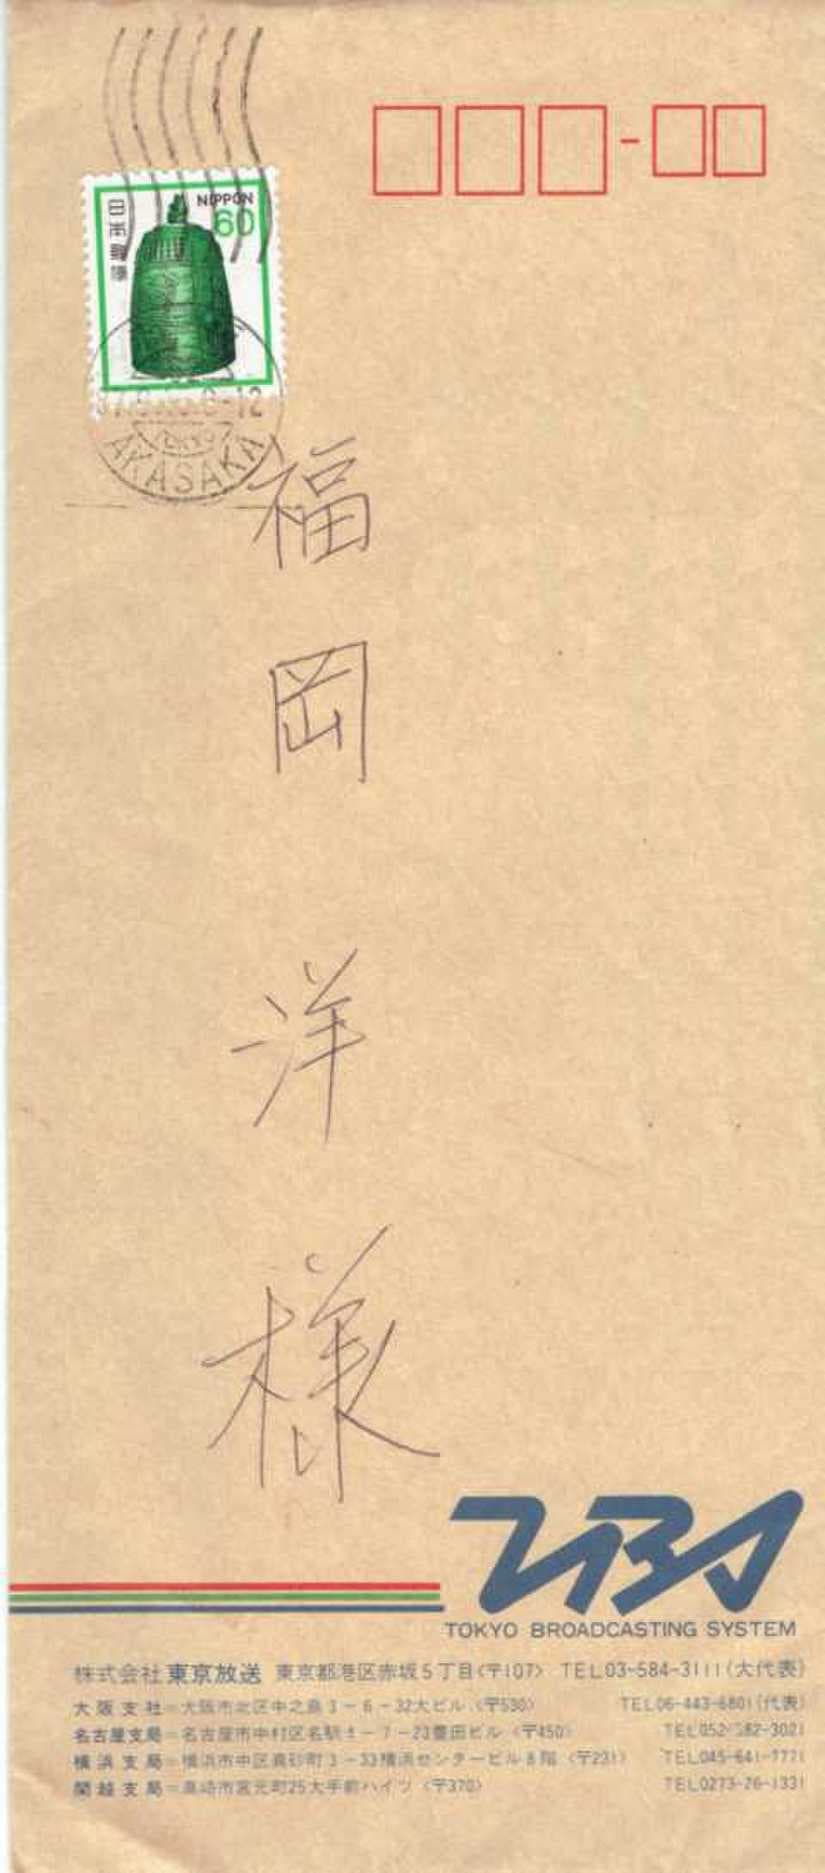 NIPPON
60
日本郵便
8-12
TOKYO
AKASAKA
福岡 洋 様
TBS
TOKYO BROADCASTING SYSTEM
株式会社 東京放送 東京都港区赤坂5丁目〈〒107〉 TEL03-584-3111(大代表)
大阪支社=大阪市北区中之島3-6-32大ビル〈〒530〉 TEL06-443-6801(代表)
名古屋支局=名古屋市中村区名駅4-7-23豊田ビル〈〒450〉 TEL052-582-3021
横浜支局=横浜市中区真砂町3-33横浜センタービル8階〈〒231〉 TEL045-641-7771
関越支局=高崎市宮元町25大手前ハイツ〈〒370〉 TEL0273-26-1331